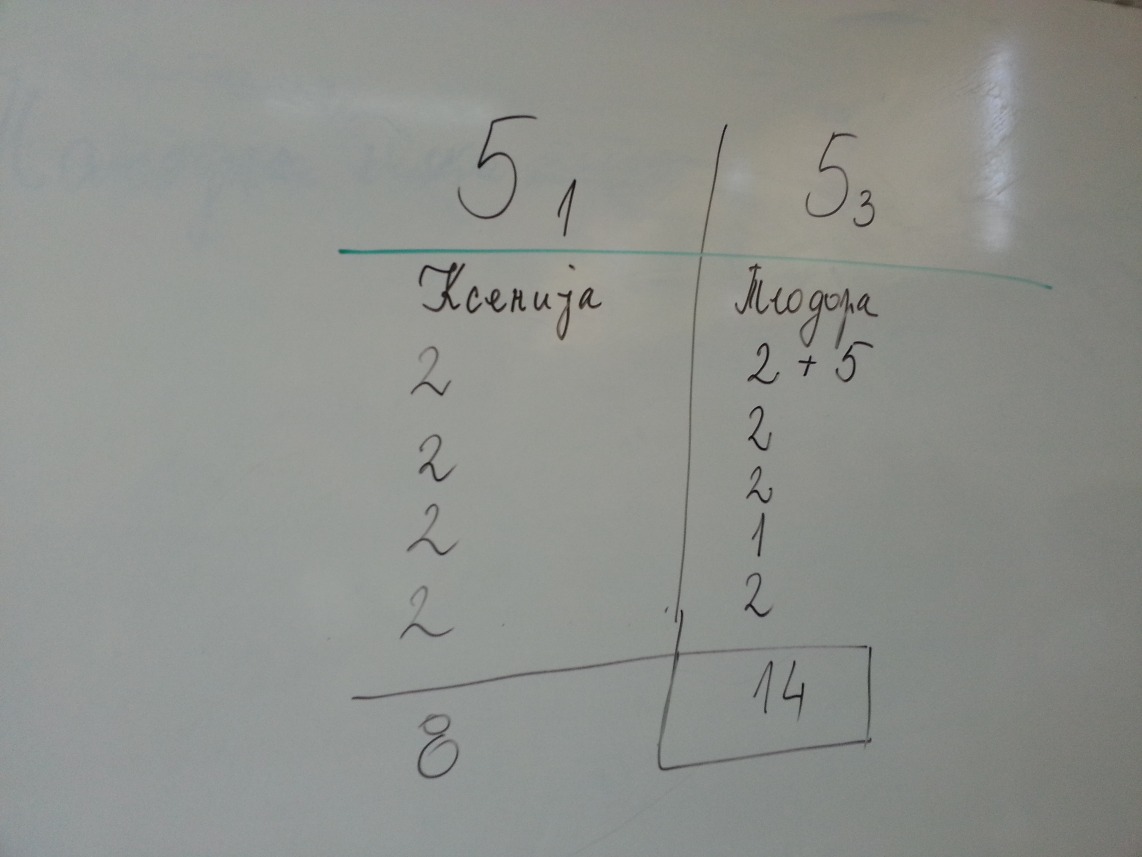 5₁ 5₃
Ксенија Теодора
2 2 + 5
2 2
2 2
2 1
2
8 14